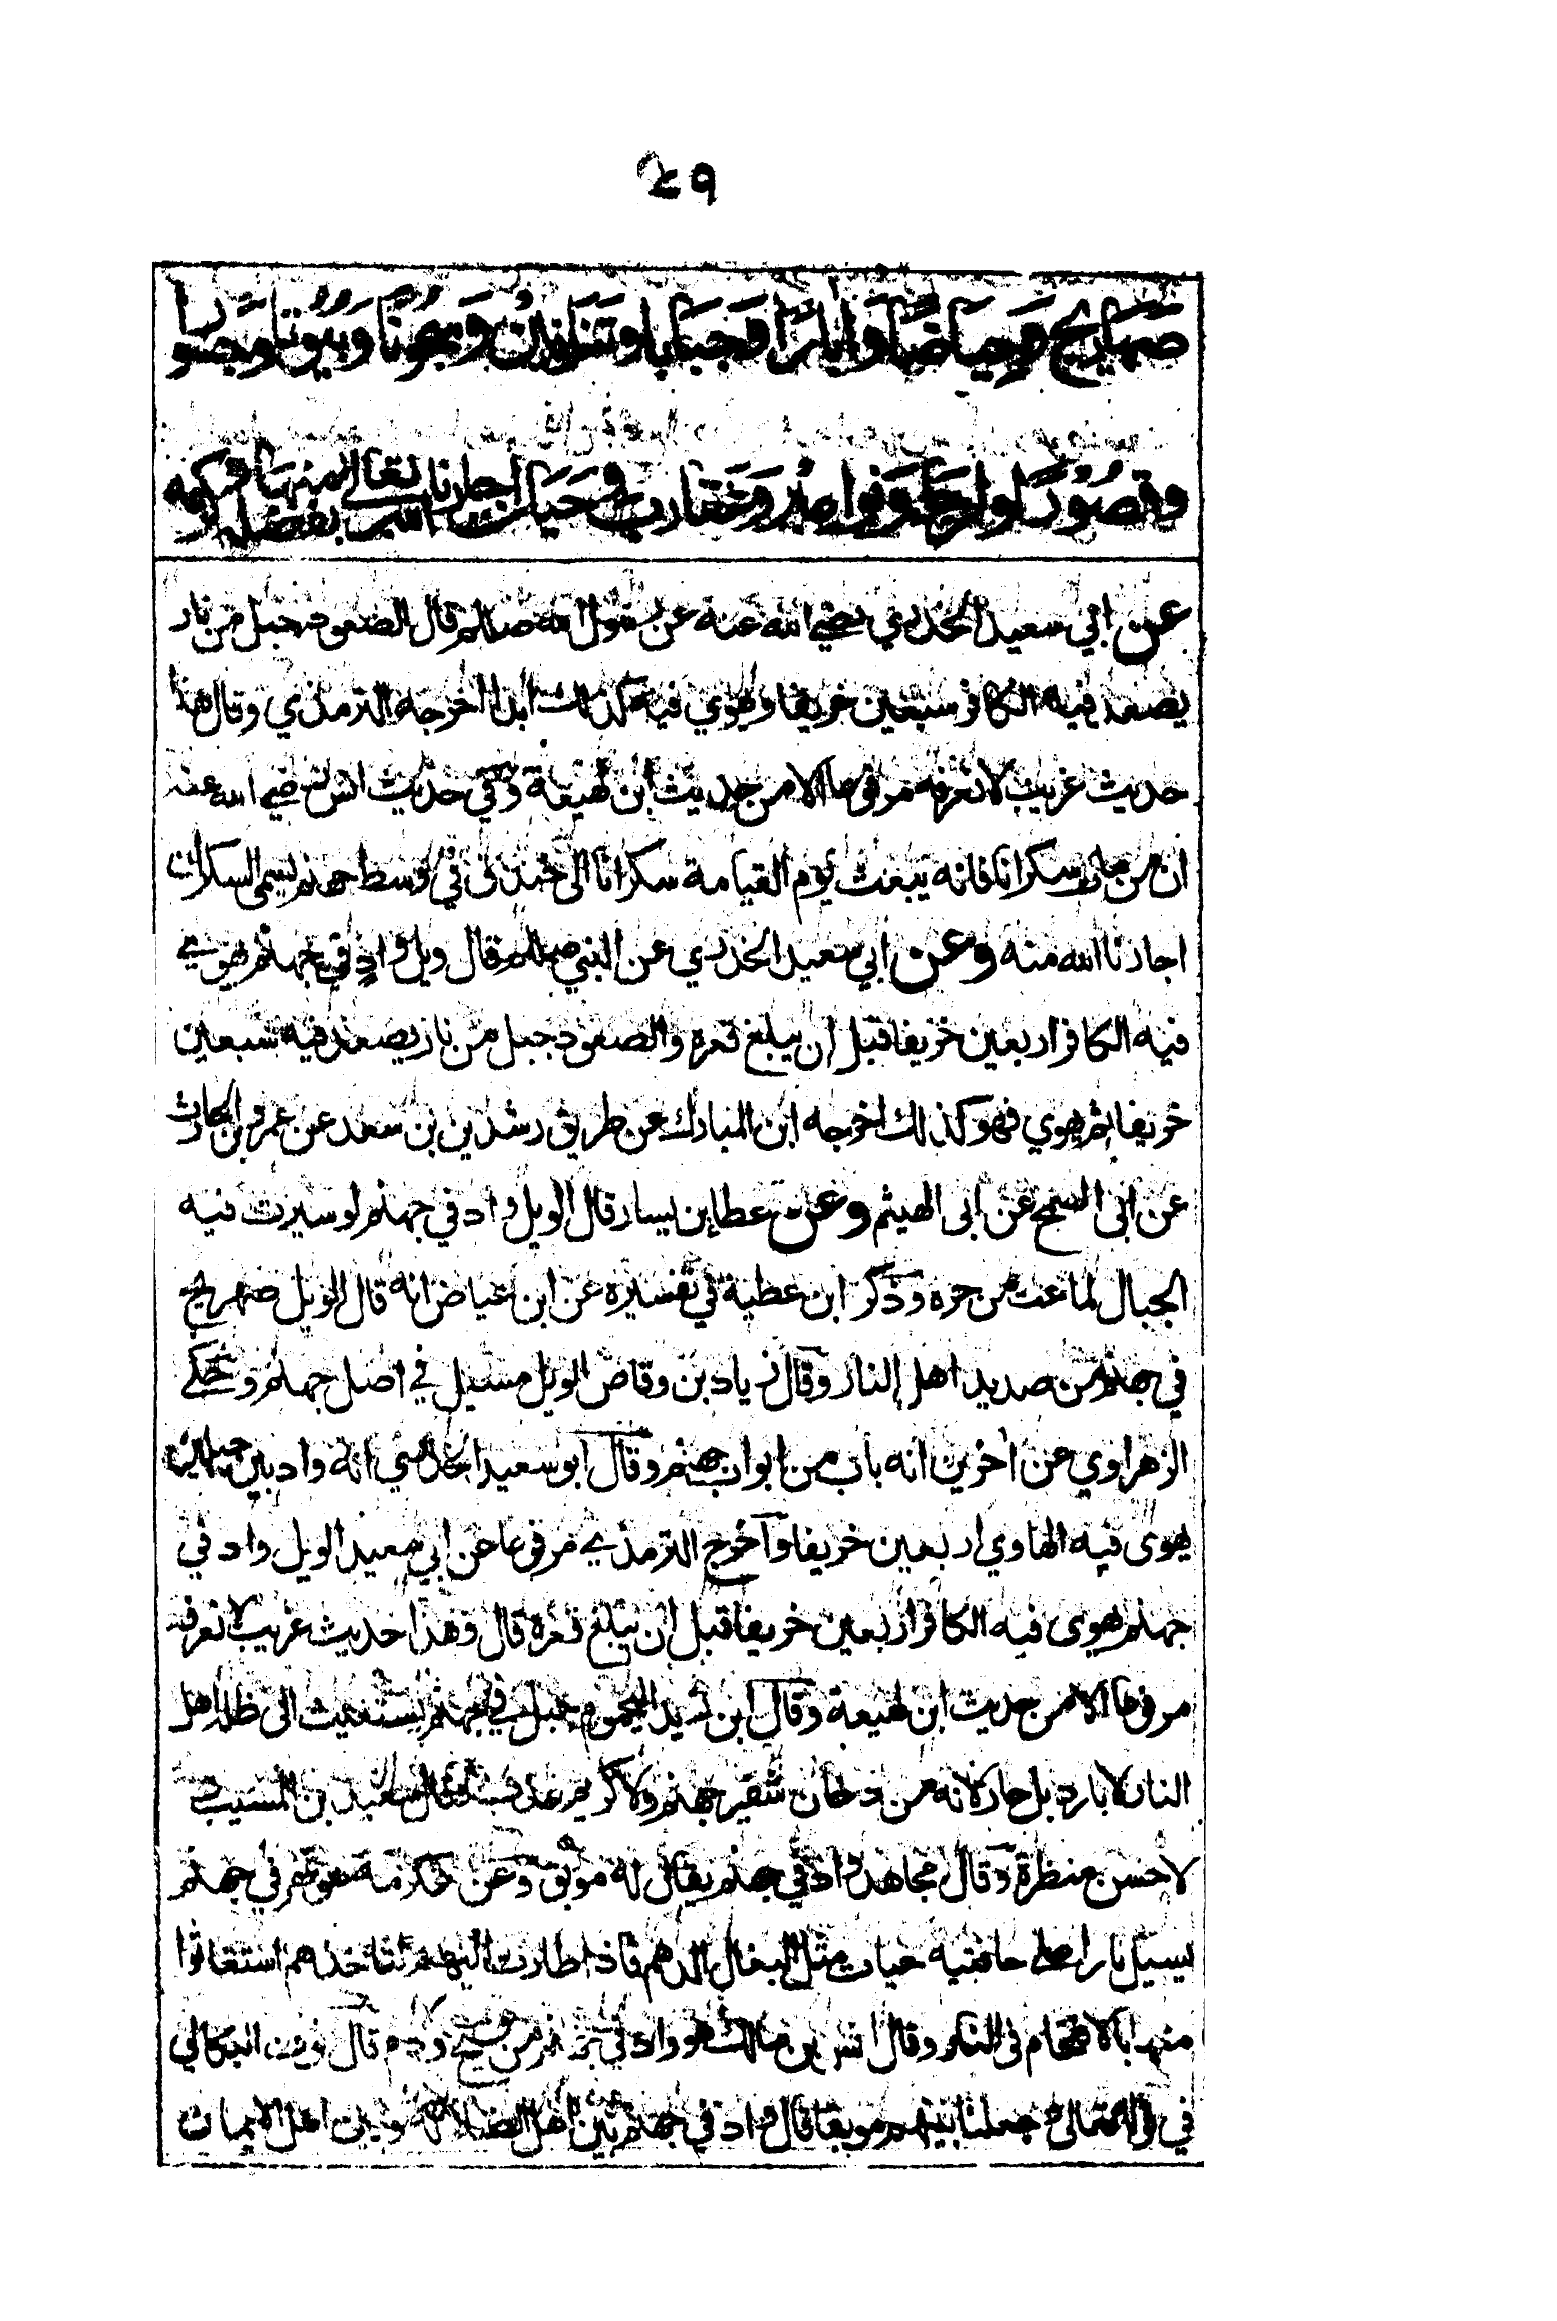 ٤٩
صهاريج وحياضا وابارا وجبابا وتنانير وسجونا وبيوتا وجسوا
وقصورا وارحاء ونواعير وعقارب وحيات اجارنا الله تعالى منها بفضله وكرمه
عن ابي سعيد الخدري رضي الله عنه عن رسول الله صلعم قال الصعود جبل من نار
يصعد فيه الكافر سبعين خريفا ويهوي فيه كذلك ابدا اخرجه الترمذي وقال هذا
حديث غريب لا نعرفه مرفوعا الا من حديث ابن لهيعة وفي حديث انس رضي الله عنه
ان من مات سكرانا فانه يبعث يوم القيامة سكرانا الى خندق في وسط جهنم يسمى السكران
اجارنا الله منه وعن ابي سعيد الخدري عن النبي صلعم قال ويل واد في جهنم يهوي
فيه الكافر اربعين خريفا قبل ان يبلغ قعره والصعود جبل من نار يصعد فيه سبعين
خريفا ثم يهوي فهو كذلك اخرجه ابن المبارك عن طريق رشدين بن سعد عن عمرو بن الحارث
عن ابى السمح عن ابى الهيثم وعن عطا بن يسار قال الويل واد في جهنم لو سيرت فيه
الجبال لماعت من حره وذكر ابن عطية في تفسيره عن ابن عياض انه قال الويل صهريج
في جهنم من صديد اهل النار وقال زياد بن وقاص الويل مسيل في اصل جهنم وحكى
الزهراوي عن اخرين انه باب من ابواب جهنم وقال ابو سعيد الخدري انه واد بين جبلين
يهوى فيه الهاوي اربعين خريفا وآخرج الترمذي مرفوعا عن ابي سعيد الويل واد في
جهنم يهوى فيه الكافر اربعين خريفا قبل ان يبلغ قعره قال وهذا حديث غريب لا نعرفه
مرفوعا الا من حديث ابن لهيعة وقال ابن زيد اليحموم جبل في جهنم يستغيث الى ظله اهل
النار لا بارد بل حار لانه من دخان شفير جهنم ولا كريم عذب قال سعيد بن المسيب
لا حسن منظره وقال مجاهد واد في جهنم يقال له موبق وعن عكرمة هو نهر في جهنم
يسيل نارا على حافتيه حيات مثل البغال الدهم فاذا طارت اليهم لتاخذهم استغاثوا
منها بالاقتحام في النار وقال انس بن مالك هو واد في جهنم من قيح ودم قال نوف البكالي
في قوله تعالى وجعلنا بينهم موبقا قال واد في جهنم بين اهل الضلالة وبين اهل الايمان